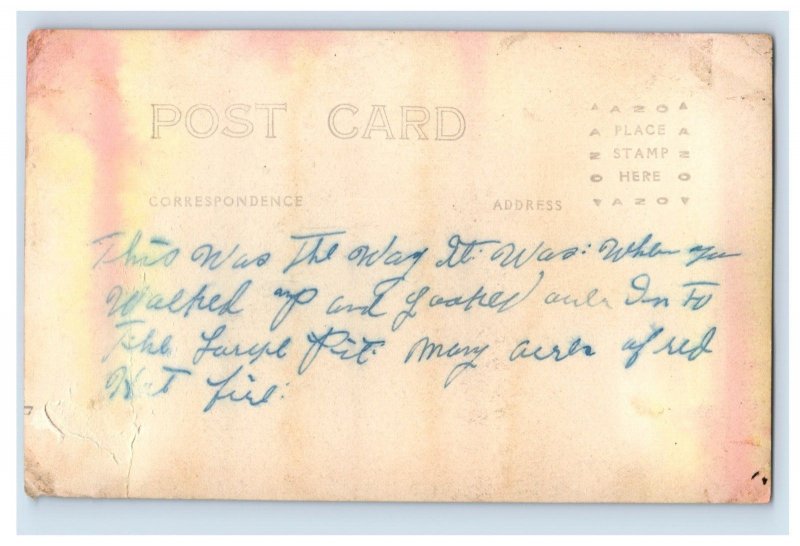 POST CARD
▲ AZO ▲
PLACE
STAMP
HERE
▼ AZO ▼
CORRESPONDENCE
ADDRESS
This Was The Way It Was: When you
Walked up and Looked over In To
The Large Pit: Many acres of red
Hot fire: